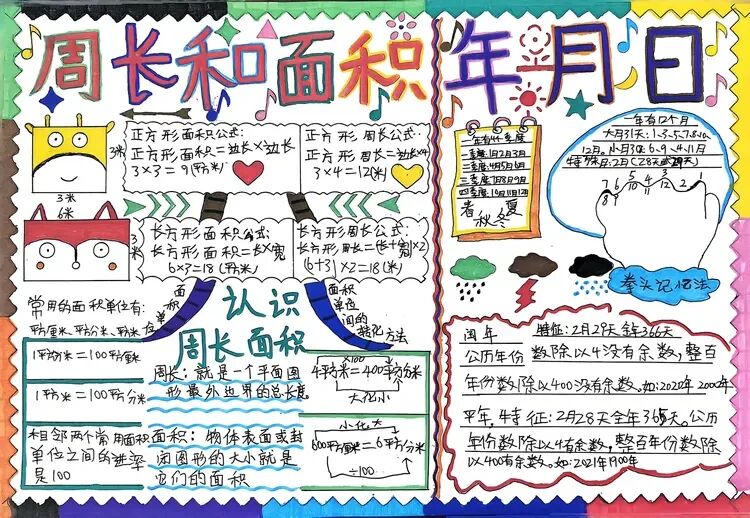 周长和面积
年月日
正方形面积公式:
正方形面积=边长×边长
3×3=9(平方米)
正方形周长公式:
正方形周长=边长×4
3×4=12(米)
3米
3米
6米
3米
长方形面积公式:
长方形面积=长×宽
6×3=18(平方米)
长方形周长公式:
长方形周长=(长+宽)×2
(6+3)×2=18(米)
常用的面积单位有:
平方厘米、平方分米、平方米
面积单位
认识
周长面积
面积单位间的转化方法
1平方米=100平方分米
1平方分米=100平方厘米
相邻两个常用面积
单位之间的进率
是100
周长:就是一个平面图
形最外边界的总长度。
面积:物体表面或封
闭图形的大小就是
它们的面积
×100
4平方米=400平方分米
大化小
小化大
600平方厘米=6平方分米
÷100
一年有4个季度
一季度:1月2月3月
二季度:4月5月6月
三季度:7月8月9月
四季度:10月11月12月
春夏
秋冬
一年有12个月
大月31天:1.3.5.7.8.10.
12月。小月30天:6.9.4.11月
特殊月:2月(28天或29天)
7 6 5 4 3 2 1
8 10 11 12
拳头记忆法
闰年 特征:2月29天 全年366天
公历年份数除以4没有余数,整百
年份数除以400没有余数。如:2020年 2000年
平年,特征:2月28天全年365天。公历
年份数除以4有余数,整百年份数除
以400有余数。如:2021年1900年